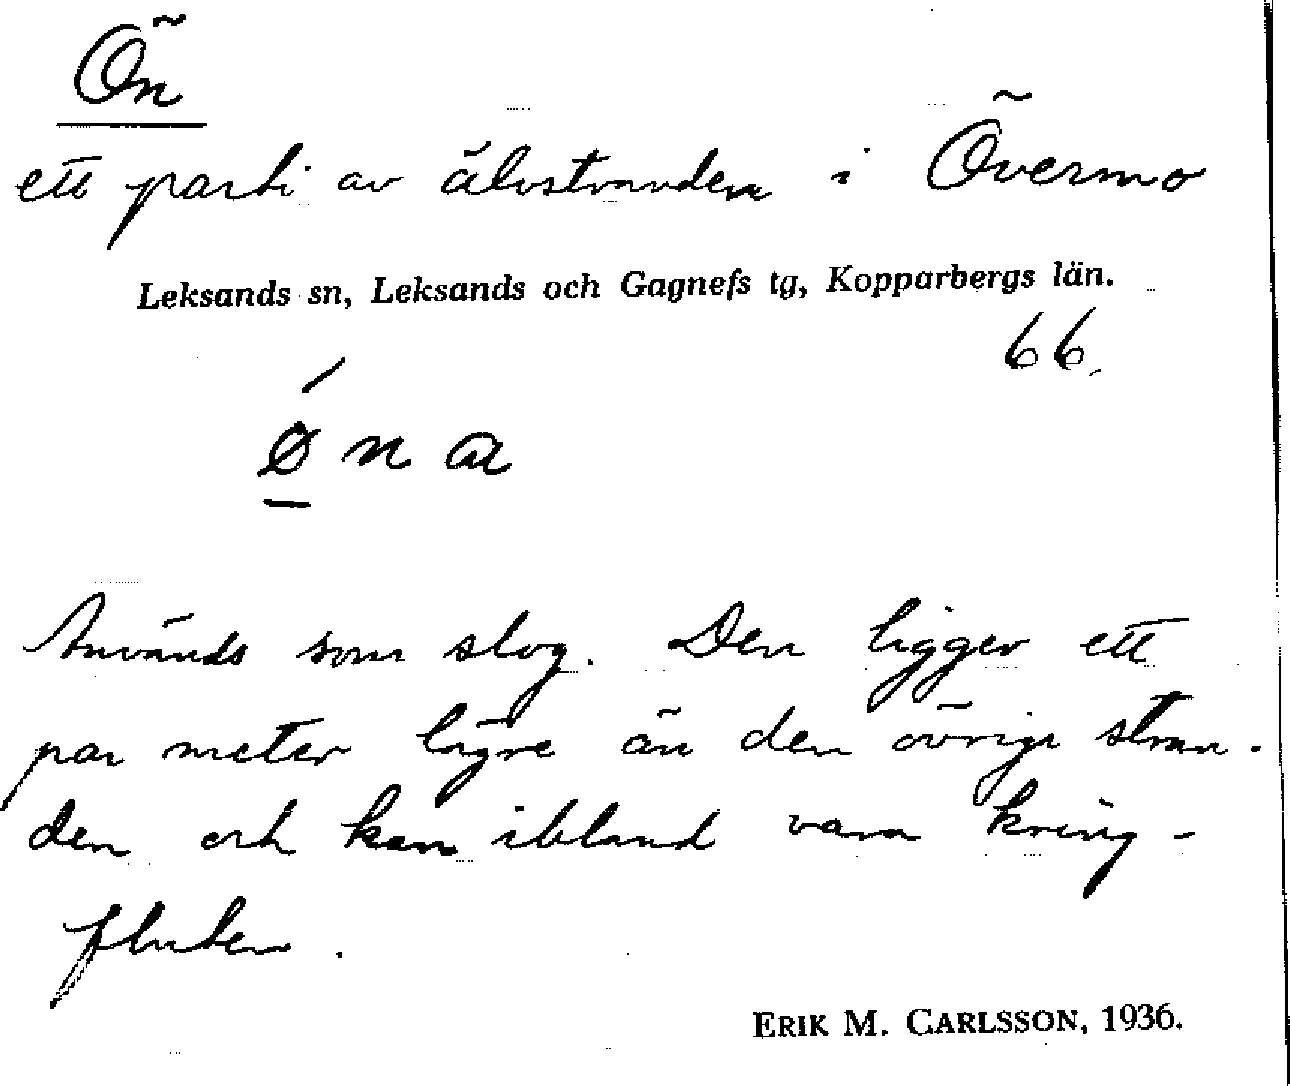 Ön
ett parti av älvstranden i Övermo
Leksands sn, Leksands och Gagnefs tg, Kopparbergs län.
66.
ø n a
Används som slog. Den ligger ett
par meter lägre än den övriga stran-
den och kan ibland vara kring-
fluten.
ERIK M. CARLSSON, 1936.